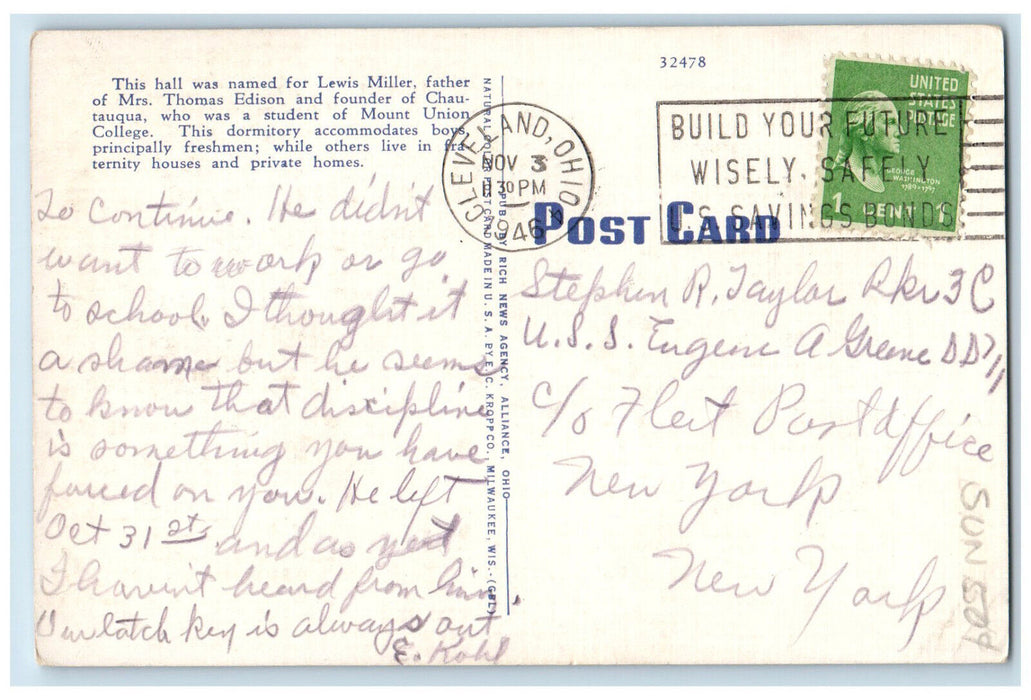 This hall was named for Lewis Miller, father
of Mrs. Thomas Edison and founder of Chau-
tauqua, who was a student of Mount Union
College. This dormitory accommodates boys,
principally freshmen; while others live in fra-
ternity houses and private homes.
To continue. He didn't
want to work or go
to school. I thought it
a shame but he seems
to know that discipline
is something you have
forced on you. He left
Oct 31st and as yet
I haven't heard from him.
Our latch key is always out
E. Kohl
NATURAL COLOR POST CARD MADE IN U. S. A. BY E. C. KROPP CO., MILWAUKEE, WIS.-(GBL)
PUB. BY RICH NEWS AGENCY, ALLIANCE, OHIO
CLEVELAND, OHIO
NOV 3
30 PM
1946
32478
BUILD YOUR FUTURE
WISELY, SAFELY
U.S. SAVINGS BONDS
UNITED
STATES
POSTAGE
GEORGE
WASHINGTON
1789-1797
1 PENNY
POST CARD
Stephen R. Taylor Bkr 3C
U.S.S. Eugene A Greene DD711
c/o Fleet Post Office
New York
New York
SUN 509